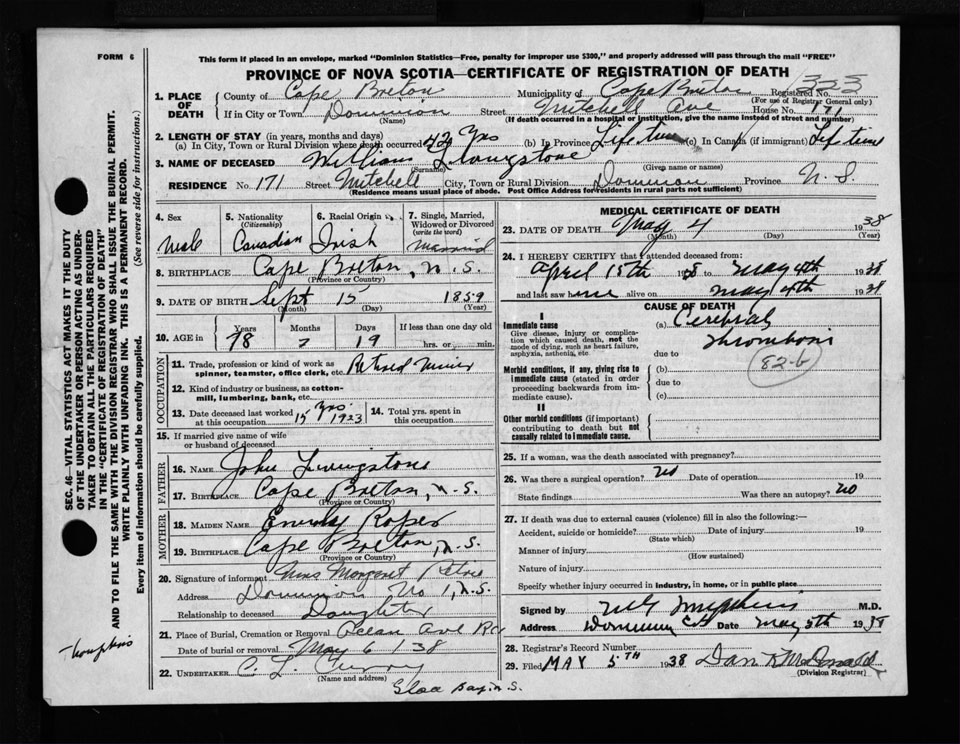 FORM 6
This form if placed in an envelope, marked "Dominion Statistics—Free, penalty for improper use $300," and properly addressed will pass through the mail "FREE"
PROVINCE OF NOVA SCOTIA—CERTIFICATE OF REGISTRATION OF DEATH
1. PLACE OF DEATH
County of Cape Breton Municipality of Cape Breton Registered No. 353
(For use of Registrar General only)
If in City or Town Dominion Street Mitchell Ave House No. 171
(Name) (If death occurred in a hospital or institution, give the name instead of street and number)
2. LENGTH OF STAY (in years, months and days)
(a) In City, Town or Rural Division where death occurred 42 Yrs (b) In Province Life time (c) In Canada (if immigrant) Life time
3. NAME OF DECEASED William Livingstone
(Surname) (Given name or names)
RESIDENCE No. 171 Street Mitchell City, Town or Rural Division Dominion Province N. S.
(Residence means usual place of abode. Post Office Address for residents in rural parts not sufficient)
4. Sex
Male
5. Nationality (Citizenship)
Canadian
6. Racial Origin
Irish
7. Single, Married, Widowed or Divorced (write the word)
Married
8. BIRTHPLACE Cape Breton, N. S.
(Province or Country)
9. DATE OF BIRTH Sept 15 1859
(Month) (Day) (Year)
10. AGE in Years Months Days If less than one day old
78 7 19 hrs. or min.
OCCUPATION
11. Trade, profession or kind of work as spinner, teamster, office clerk, etc. Retired Miner
12. Kind of industry or business, as cotton-mill, lumbering, bank, etc.
13. Date deceased last worked at this occupation 15 Yrs. 1923
14. Total yrs. spent in this occupation
15. If married give name of wife or husband of deceased
FATHER
16. NAME John Livingstone
17. BIRTHPLACE Cape Breton, N.S.
(Province or Country)
MOTHER
18. MAIDEN NAME Emily Roper
19. BIRTHPLACE Cape Breton, N.S.
(Province or Country)
20. Signature of informant Mrs Margaret
Address Dominion No 1, N.S.
Relationship to deceased Daughter
21. Place of Burial, Cremation or Removal Ocean Ave RC
Date of burial or removal May 6 / 38
22. UNDERTAKER C. L. Curry
(Name and address)
Glace Bay N. S.
MEDICAL CERTIFICATE OF DEATH
23. DATE OF DEATH May 4 1938
(Month) (Day) (Year)
24. I HEREBY CERTIFY that I attended deceased from
April 15th 1938 to May 4th 1938
and last saw him alive on May 4th 1938
CAUSE OF DEATH
I
Immediate cause
Give disease, injury or complication which caused death, not the mode of dying, such as heart failure, asphyxia, asthenia, etc
(a) Cerebral
Thrombosis
due to
82-b
Morbid conditions, if any, giving rise to immediate cause (stated in order proceeding backwards from immediate cause).
(b)
due to
(c)
II
Other morbid conditions (if important) contributing to death but not causally related to immediate cause.
25. If a woman, was the death associated with pregnancy?
26. Was there a surgical operation? No Date of operation 19
State findings Was there an autopsy? No
27. If death was due to external causes (violence) fill in also the following:—
Accident, suicide or homicide? Date of injury 19
(State which)
Manner of injury
(How sustained)
Nature of injury
Specify whether injury occurred in industry, in home, or in public place
Signed by Tompkins M.D.
Address Dominion Date May 5th 1938
28. Registrar's Record Number
29. Filed MAY 5TH 1938 Dan R McDonald
(Division Registrar)
SEC. 46—VITAL STATISTICS ACT MAKES IT THE DUTY
OF THE UNDERTAKER OR PERSON ACTING AS UNDER-
TAKER TO OBTAIN ALL THE PARTICULARS REQUIRED
IN THE "CERTIFICATE OF REGISTRATION OF DEATH"
AND TO FILE THE SAME WITH THE DIVISION REGISTRAR WHO SHALL ISSUE THE BURIAL PERMIT.
WRITE PLAINLY WITH UNFADING INK. THIS IS A PERMANENT RECORD.
Every item of information should be carefully supplied. (See reverse side for instructions.)
Thompkins